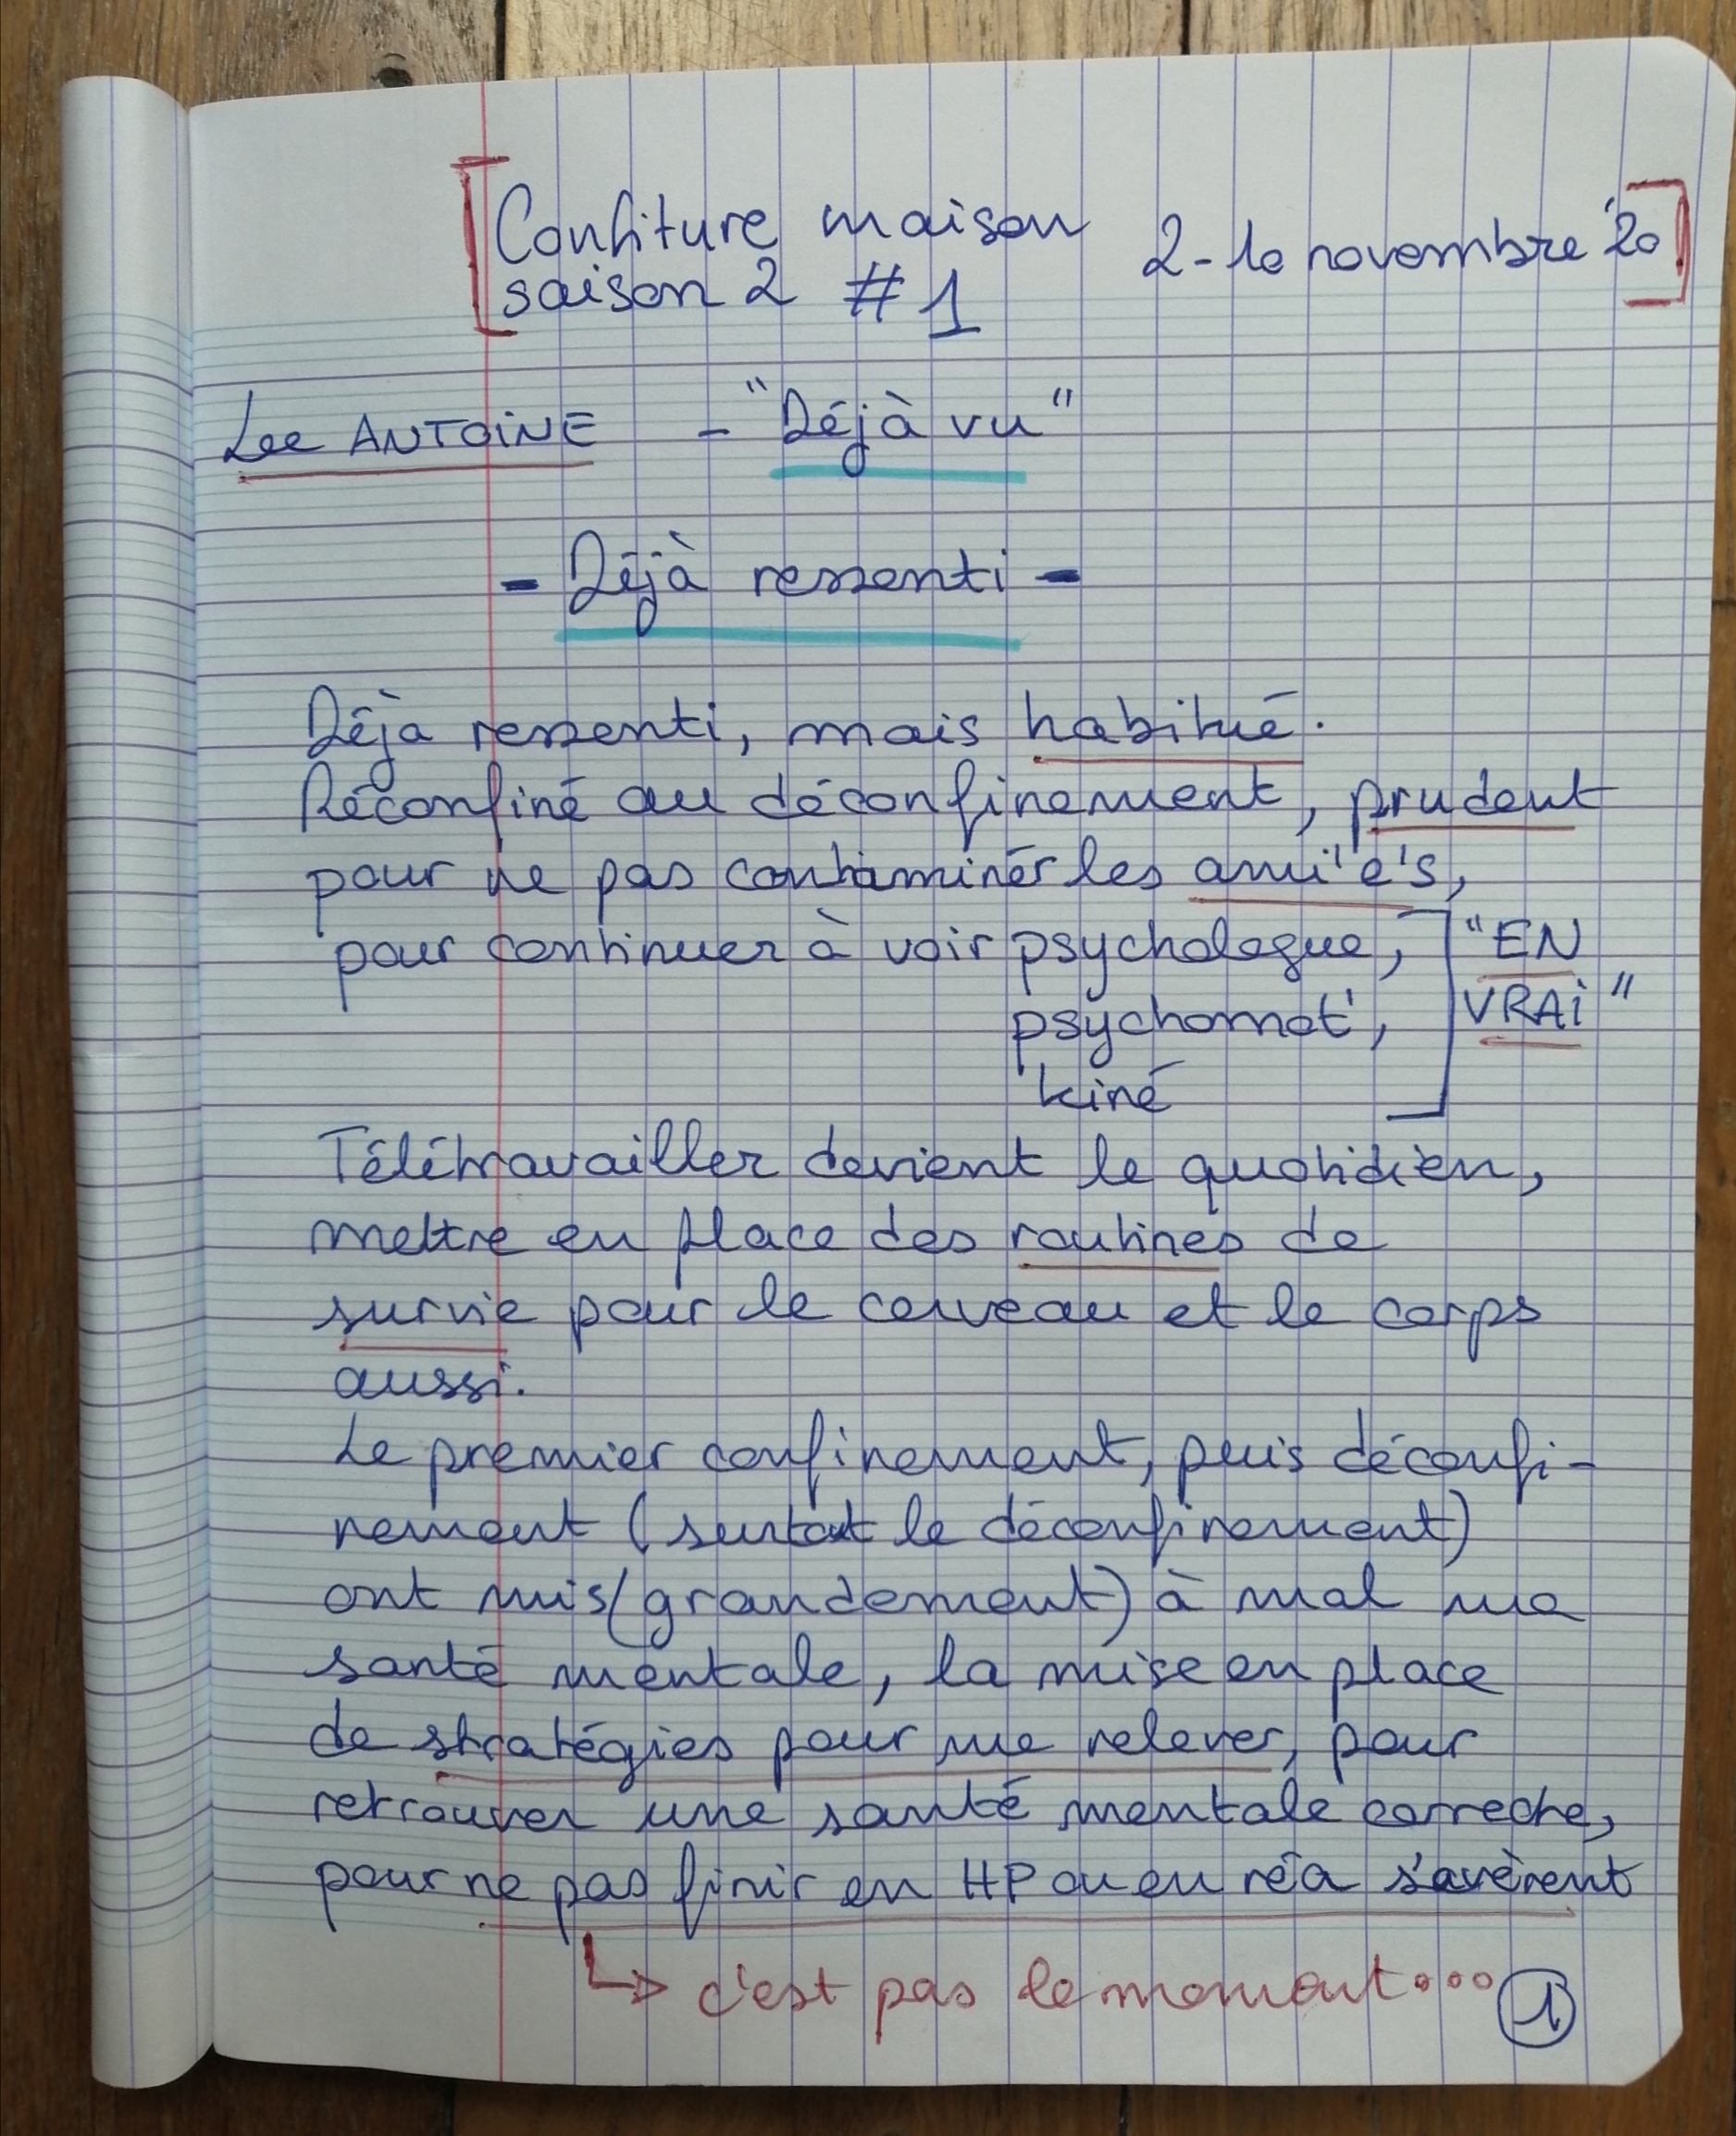 Confiture maison
saison 2 #1
2-10 novembre '20
Lee ANTOINE - "Déjà vu"
- Déjà ressenti -
Déjà ressenti, mais habitué.
Réconfiné au déconfinement, prudent
pour ne pas contaminer les ami'e's,
pour continuer à voir psychologue,
psychomot',
kiné
"EN
VRAi"
Télétravailler devient le quotidien,
mettre en place des routines de
survie pour le cerveau et le corps
aussi.
Le premier confinement, puis déconfi-
nement (surtout le déconfinement)
ont mis (grandement) à mal ma
santé mentale, la mise en place
de stratégies pour me relever, pour
retrouver une santé mentale correcte,
pour ne pas finir en HP ou en réa s'avèrent
↳ c'est pas le moment...
1